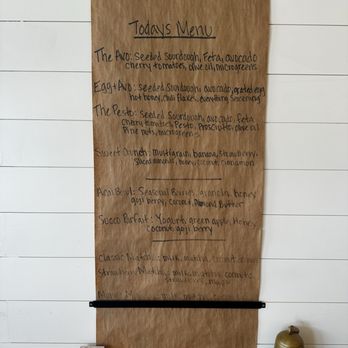 Todays Menu
The Avo: Seeded Sourdough, Feta, avocado
cherry tomatoes, olive oil, microgreens
Egg + Avo: Seeded Sourdough, avocado, grated egg
hot honey, chili flakes, everything seasoning
The Pesto: Seeded Sourdough, avocado, Feta
cherry tomatoes, Pesto, Prosciutto, olive oil
Pine nuts, microgreens
Sweet Crunch: multigrain, banana, strawberry,
Sliced almonds, honey, coconut, cinnamon
Acai Bowl: Seasonal Berries, granola, honey
goji berry, coconut, Almond Butter
Succo Parfait: Yogurt, green apple, Honey
coconut, goji berry
Classic Matcha: milk, matcha,
Strawberry Matcha: milk, matcha, coconut
strawberry,